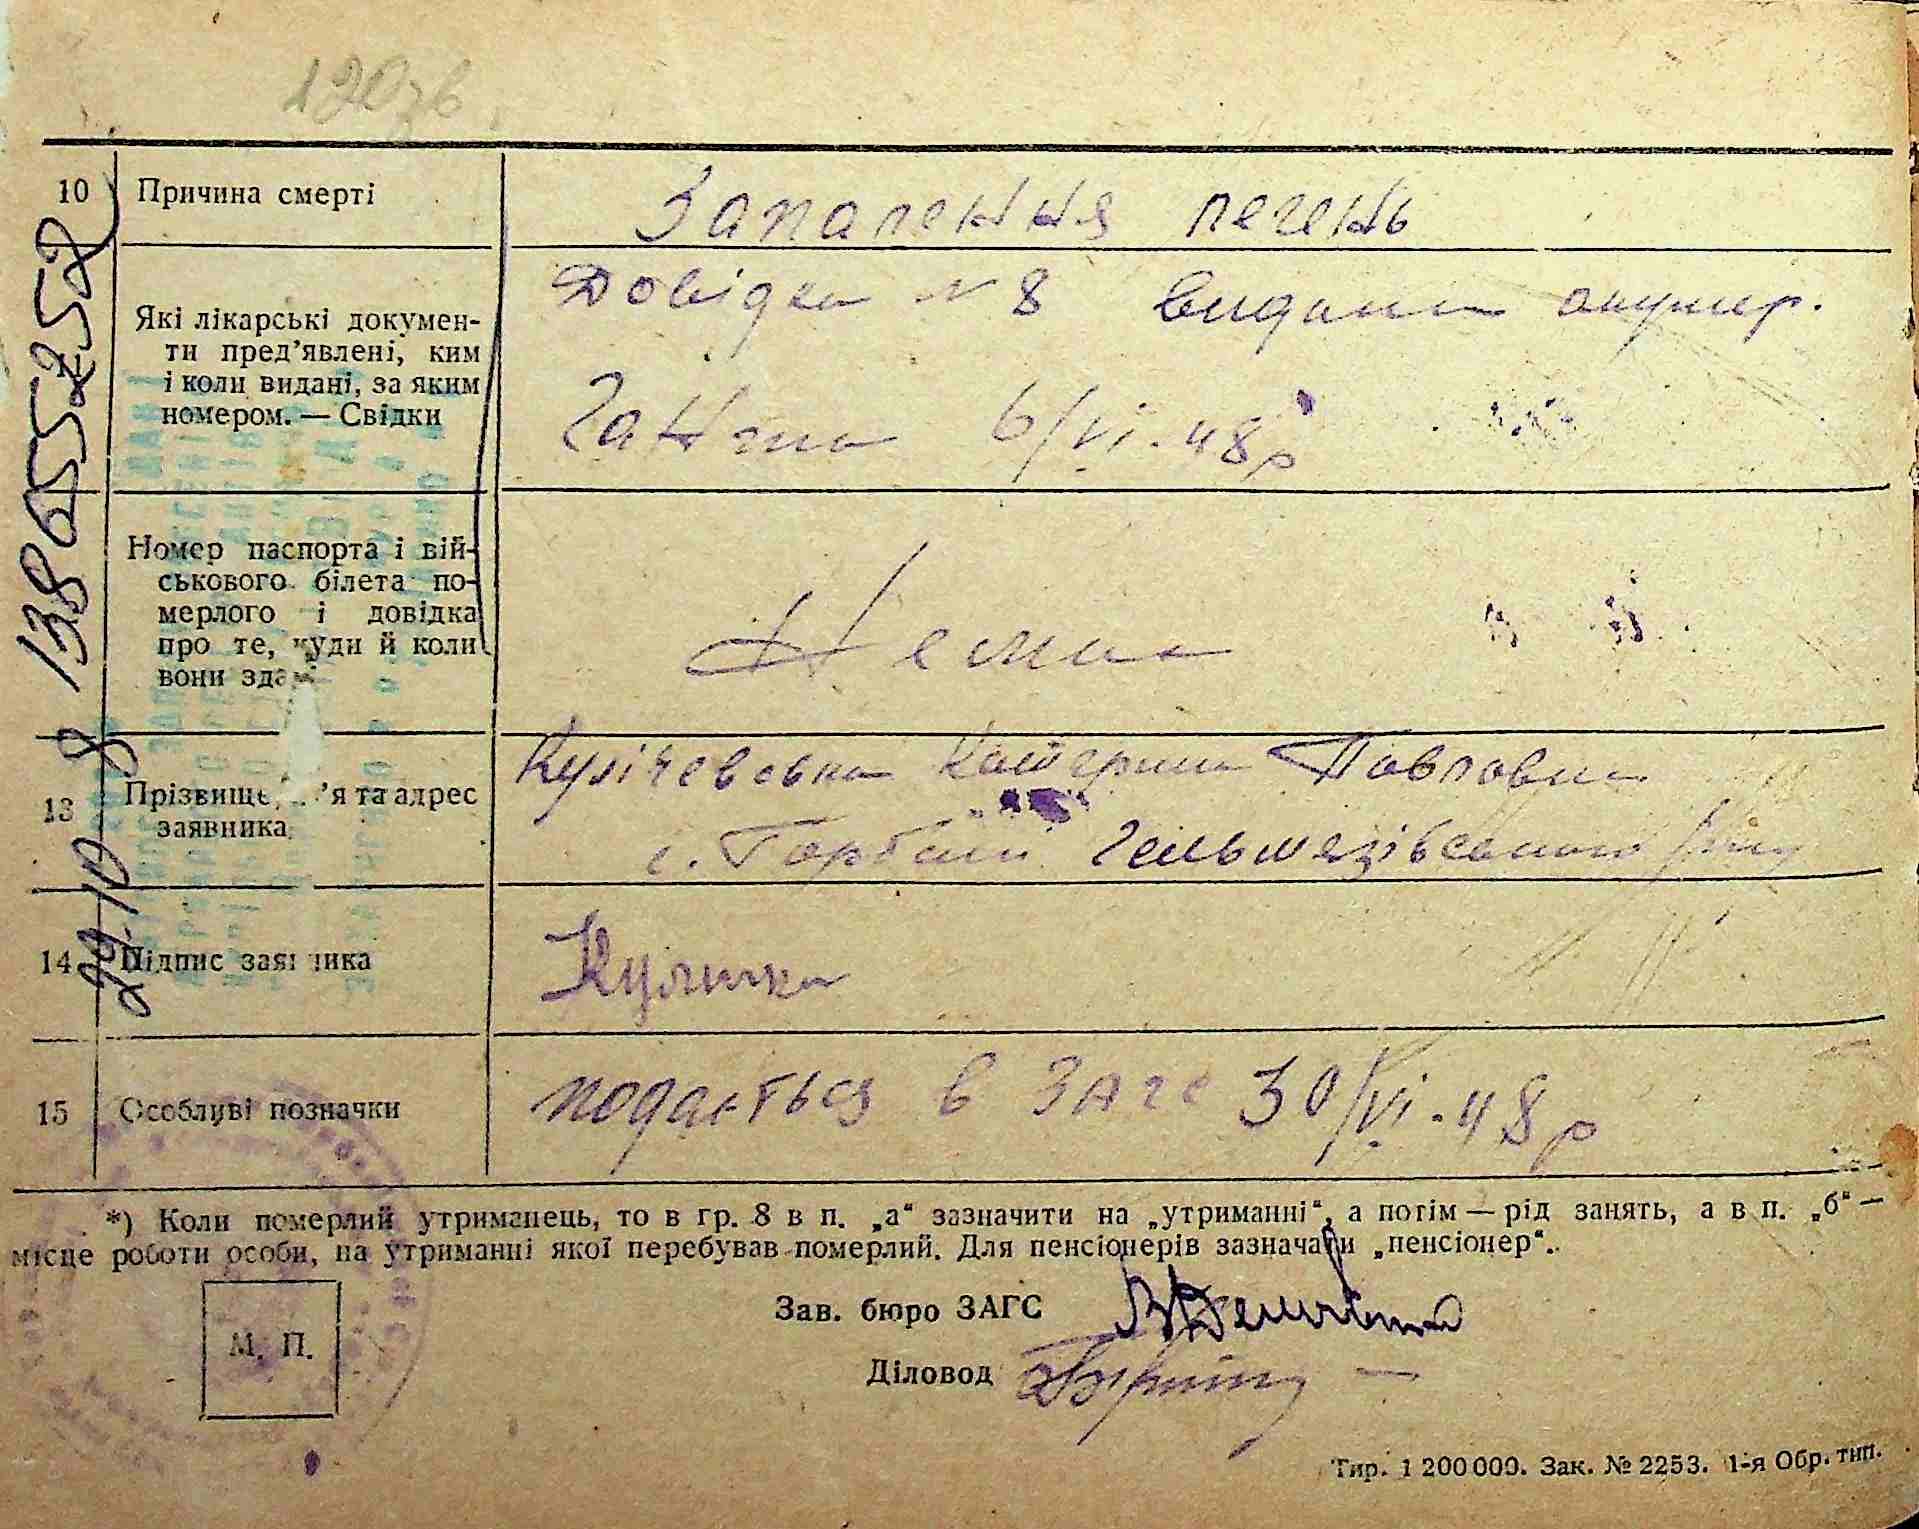 120зв
10 Причина смерті Запалення печень
Які лікарські докумен-
ти пред’явлені, ким
і коли видані, за яким
номером. — Свідки
Довідка № 8 видана акушер.
6/VI-48р
Номер паспорта і вій-
ськового білета по-
мерлого і довідка
про те, куди й коли
вони здані
Нема
13 Прізвище, ім’я та адрес
заявника
Кулічевська Катерина Павловна
с. Горбані Гельмязівського р-ну
14 Підпис заявника
15 Особливі позначки подається в Загс 30/VI-48р
29-10 8 138655252
*) Коли померлий утриманець, то в гр. 8 в п. „а“ зазначити на „утриманні“, а потім — рід занять, а в п. „б“ —
місце роботи особи, на утриманні якої перебував померлий. Для пенсіонерів зазначати „пенсіонер“.
Зав. бюро ЗАГС
М. П.
Діловод
Тир. 1 200 000. Зак. № 2253. 1-я Обр. тип.